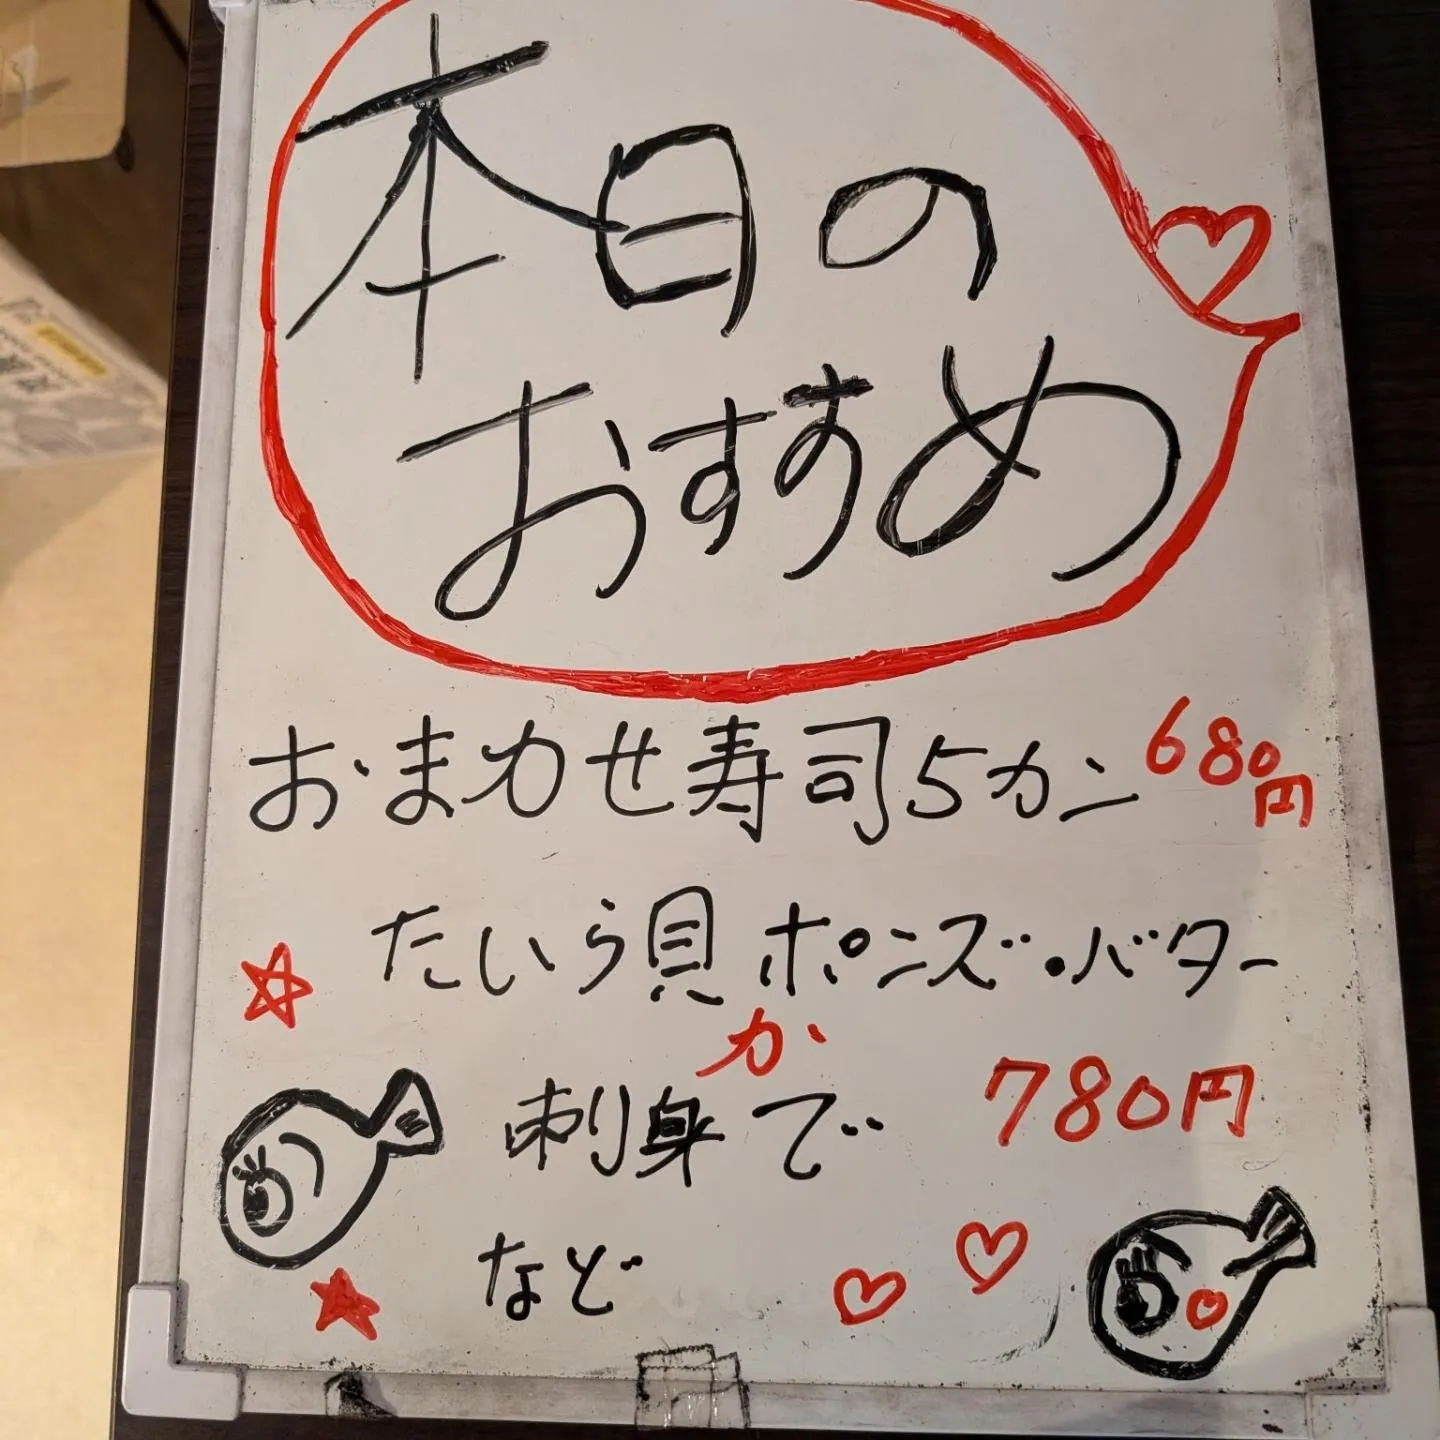 本日の
おすすめ
おまかせ寿司5カン 680円
たいら貝 ポンズ・バター
か
刺身で 780円
など